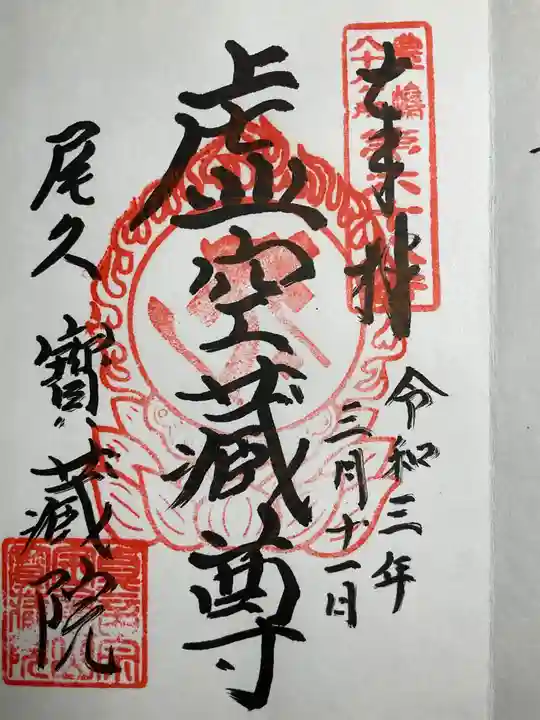 奉拝
令和三年
三月十一日
虚空蔵尊
尾久 寶蔵院
豊嶋
八十八